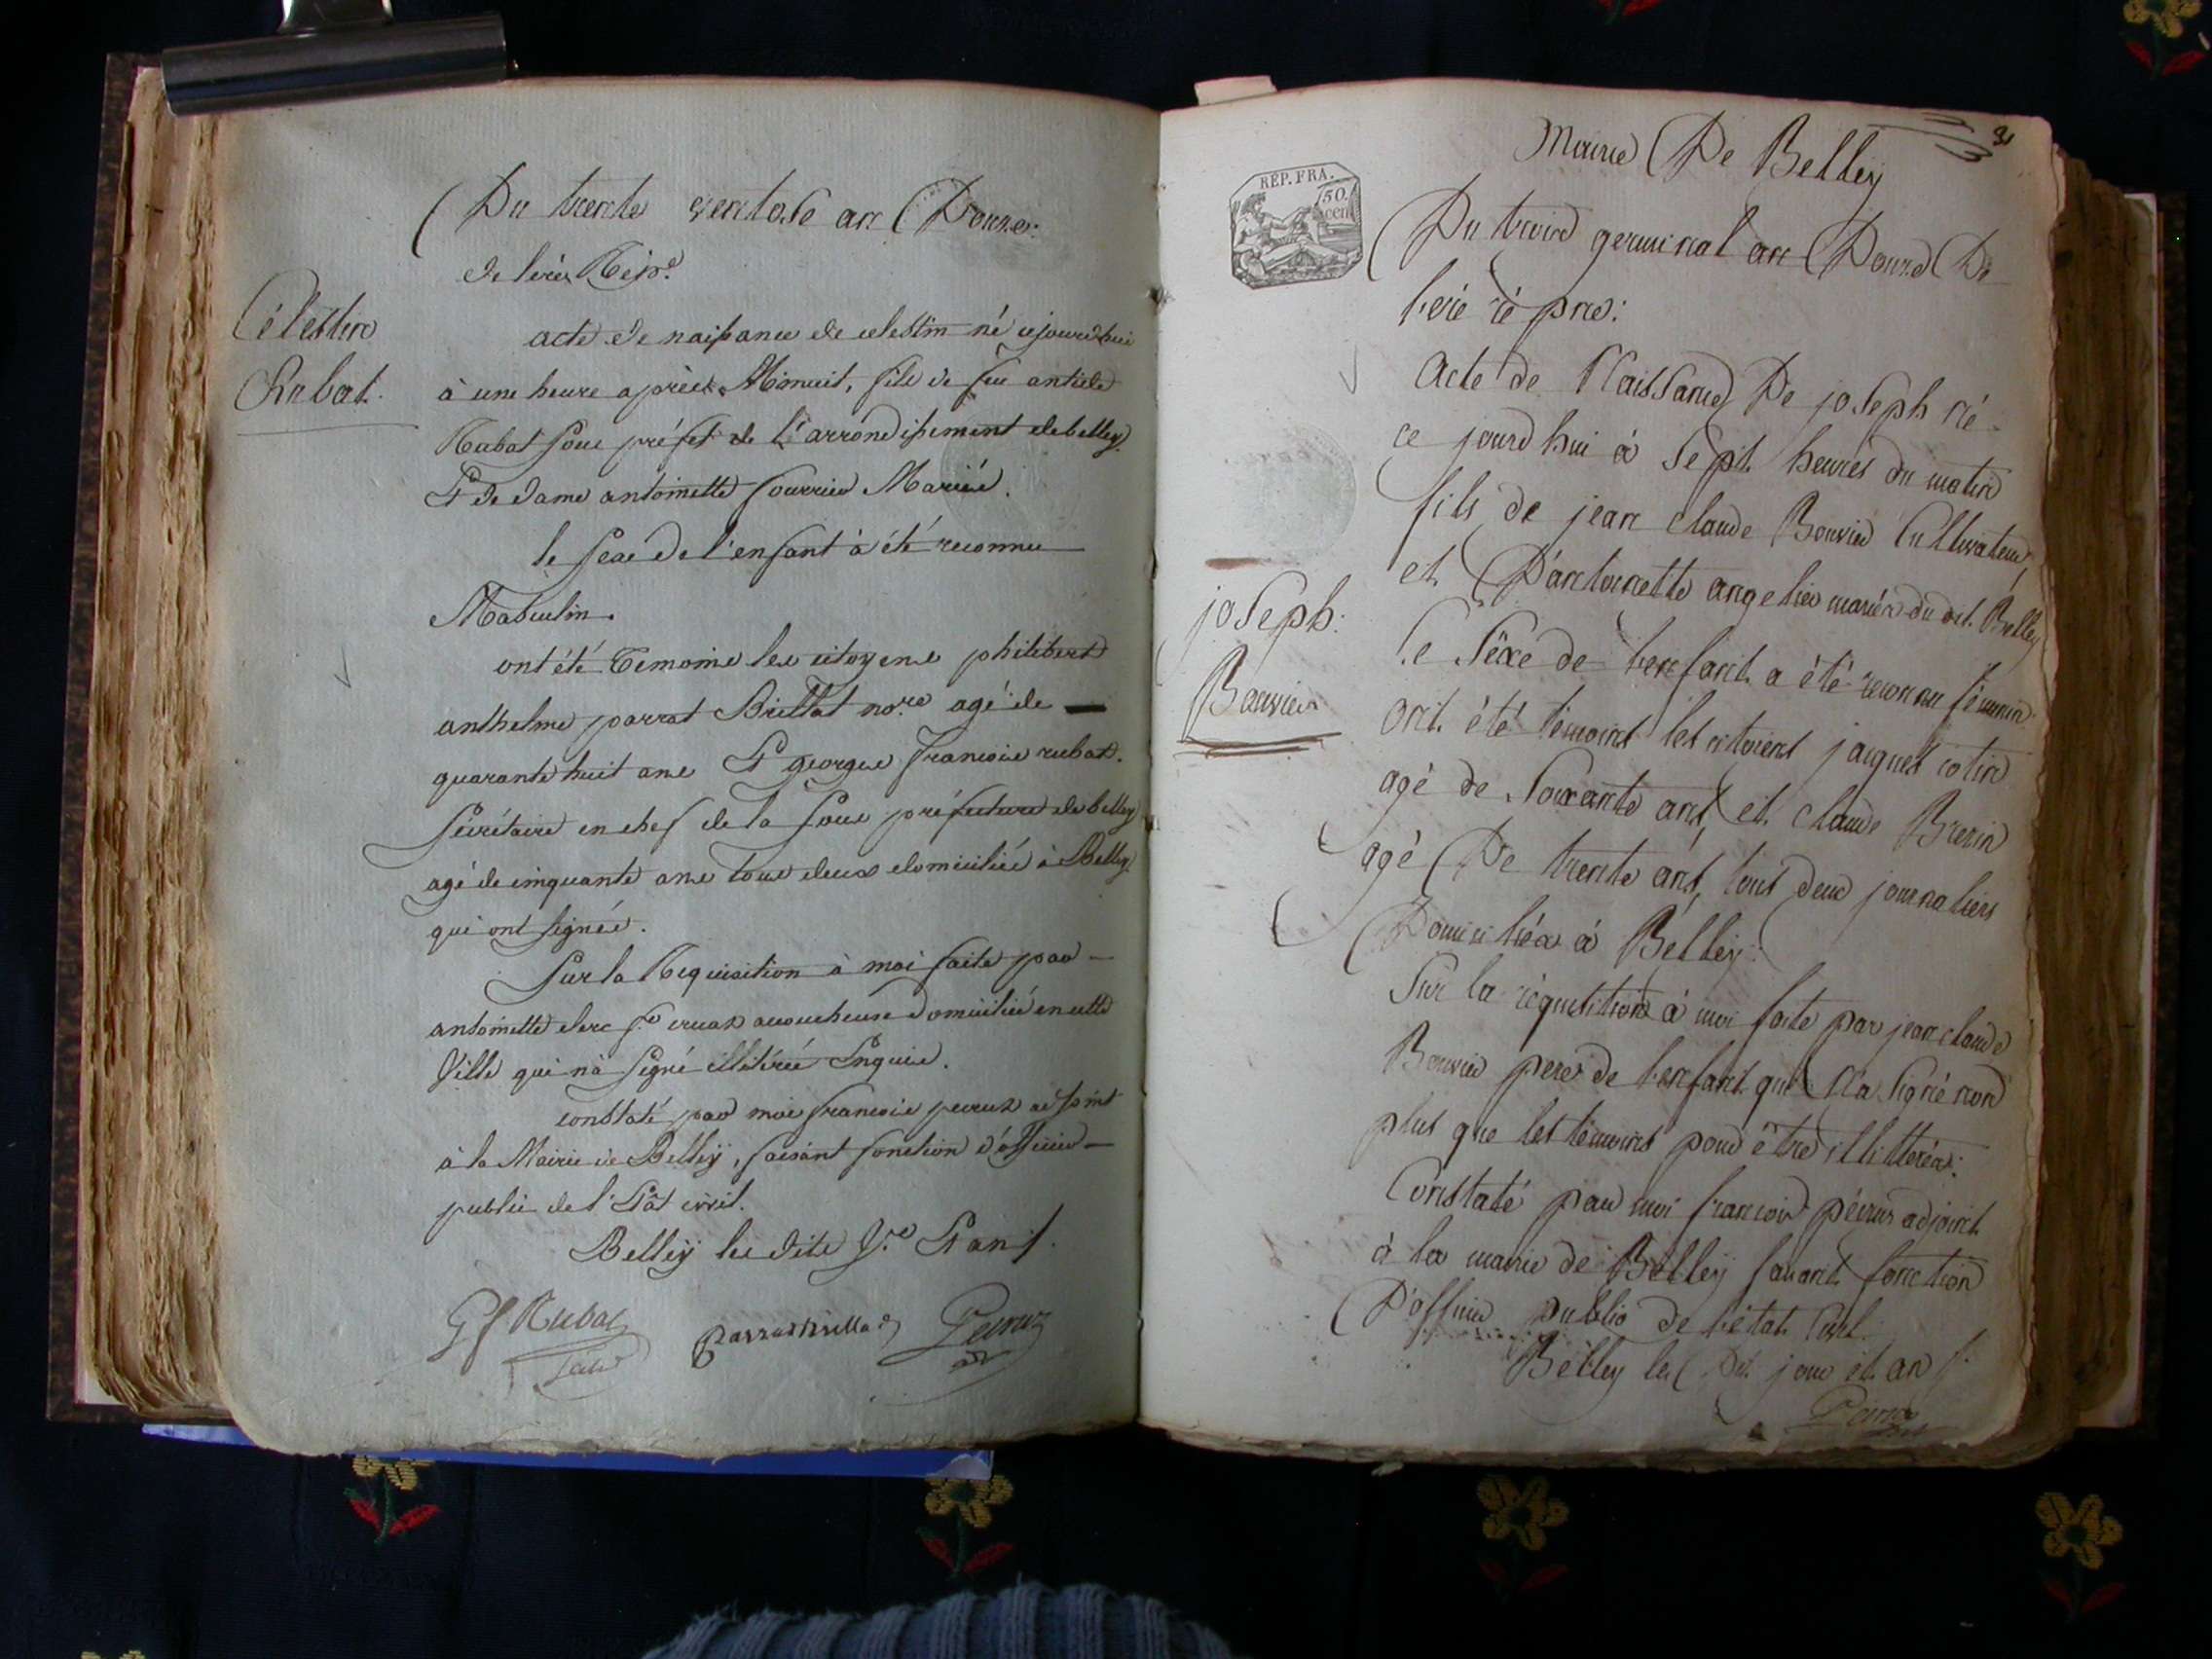 Du trente ventose an Douze
de l'ère Rép.e
Célestin
Rubat.
acte de naissance de celestin né cejourdhui
à une heure après Minuit, fils de feu
Rubat sous préfet de l'arrondissement de belley
Et de dame antoinette Mariés.
le sexe de l'enfant à été reconnu
Masculin.
ont été Temoins les citoyens philibert
anthelme parrat Brillat no.re agé de
quarante huit ans Et george francois rubat.
Sécrétaire en chef de la sous préfecture de belley
agé de cinquante ans tous deux domiciliés à Belley
qui ont signés.
Sur la Requisition à moi faite par
antoinette clerc f.e cruax acoucheuse domiciliée en cette
Ville qui n'à signé illitérée Enquise.
constaté par moi francois peiruz adjoint
à la Mairie de Belleÿ, faisant fonction d'officier
public de l'Etât civil.
Belleÿ les dits J.r Et an
Gf Rubat
Parrat Brillat
Peiruz
adj
REP. FRA.
50.
cen
Mairie De Belley
Du trois germinal an Douze De
l'ere rép ne:
Acte de Naissance De joseph né
ce jourd'hui à sept heures du matin
fils de jean claude Bouvier Cultivateur
et D'antoinette angelier mariés du dit Belley
joseph:
Bouvier
Le sexe de l'enfant a été reconnu féminin
ont été témoins les citoiens jacques cotin
agé de soixante ans, et claude Brerin
agé De trente ans, tous deux journaliers
Domiciliés à Belley:
Sur la réquisition à moi faite par jean claude
Bouvier pere de l'enfant qui N'a signé non
plus que les témoins pour être illitterés:
Constaté par moi francois péiruz adjoint
à la mairie de Belley faisant fonction
D'officier public de l'état Civil.
Belley les Dit jour et an
Peiruz